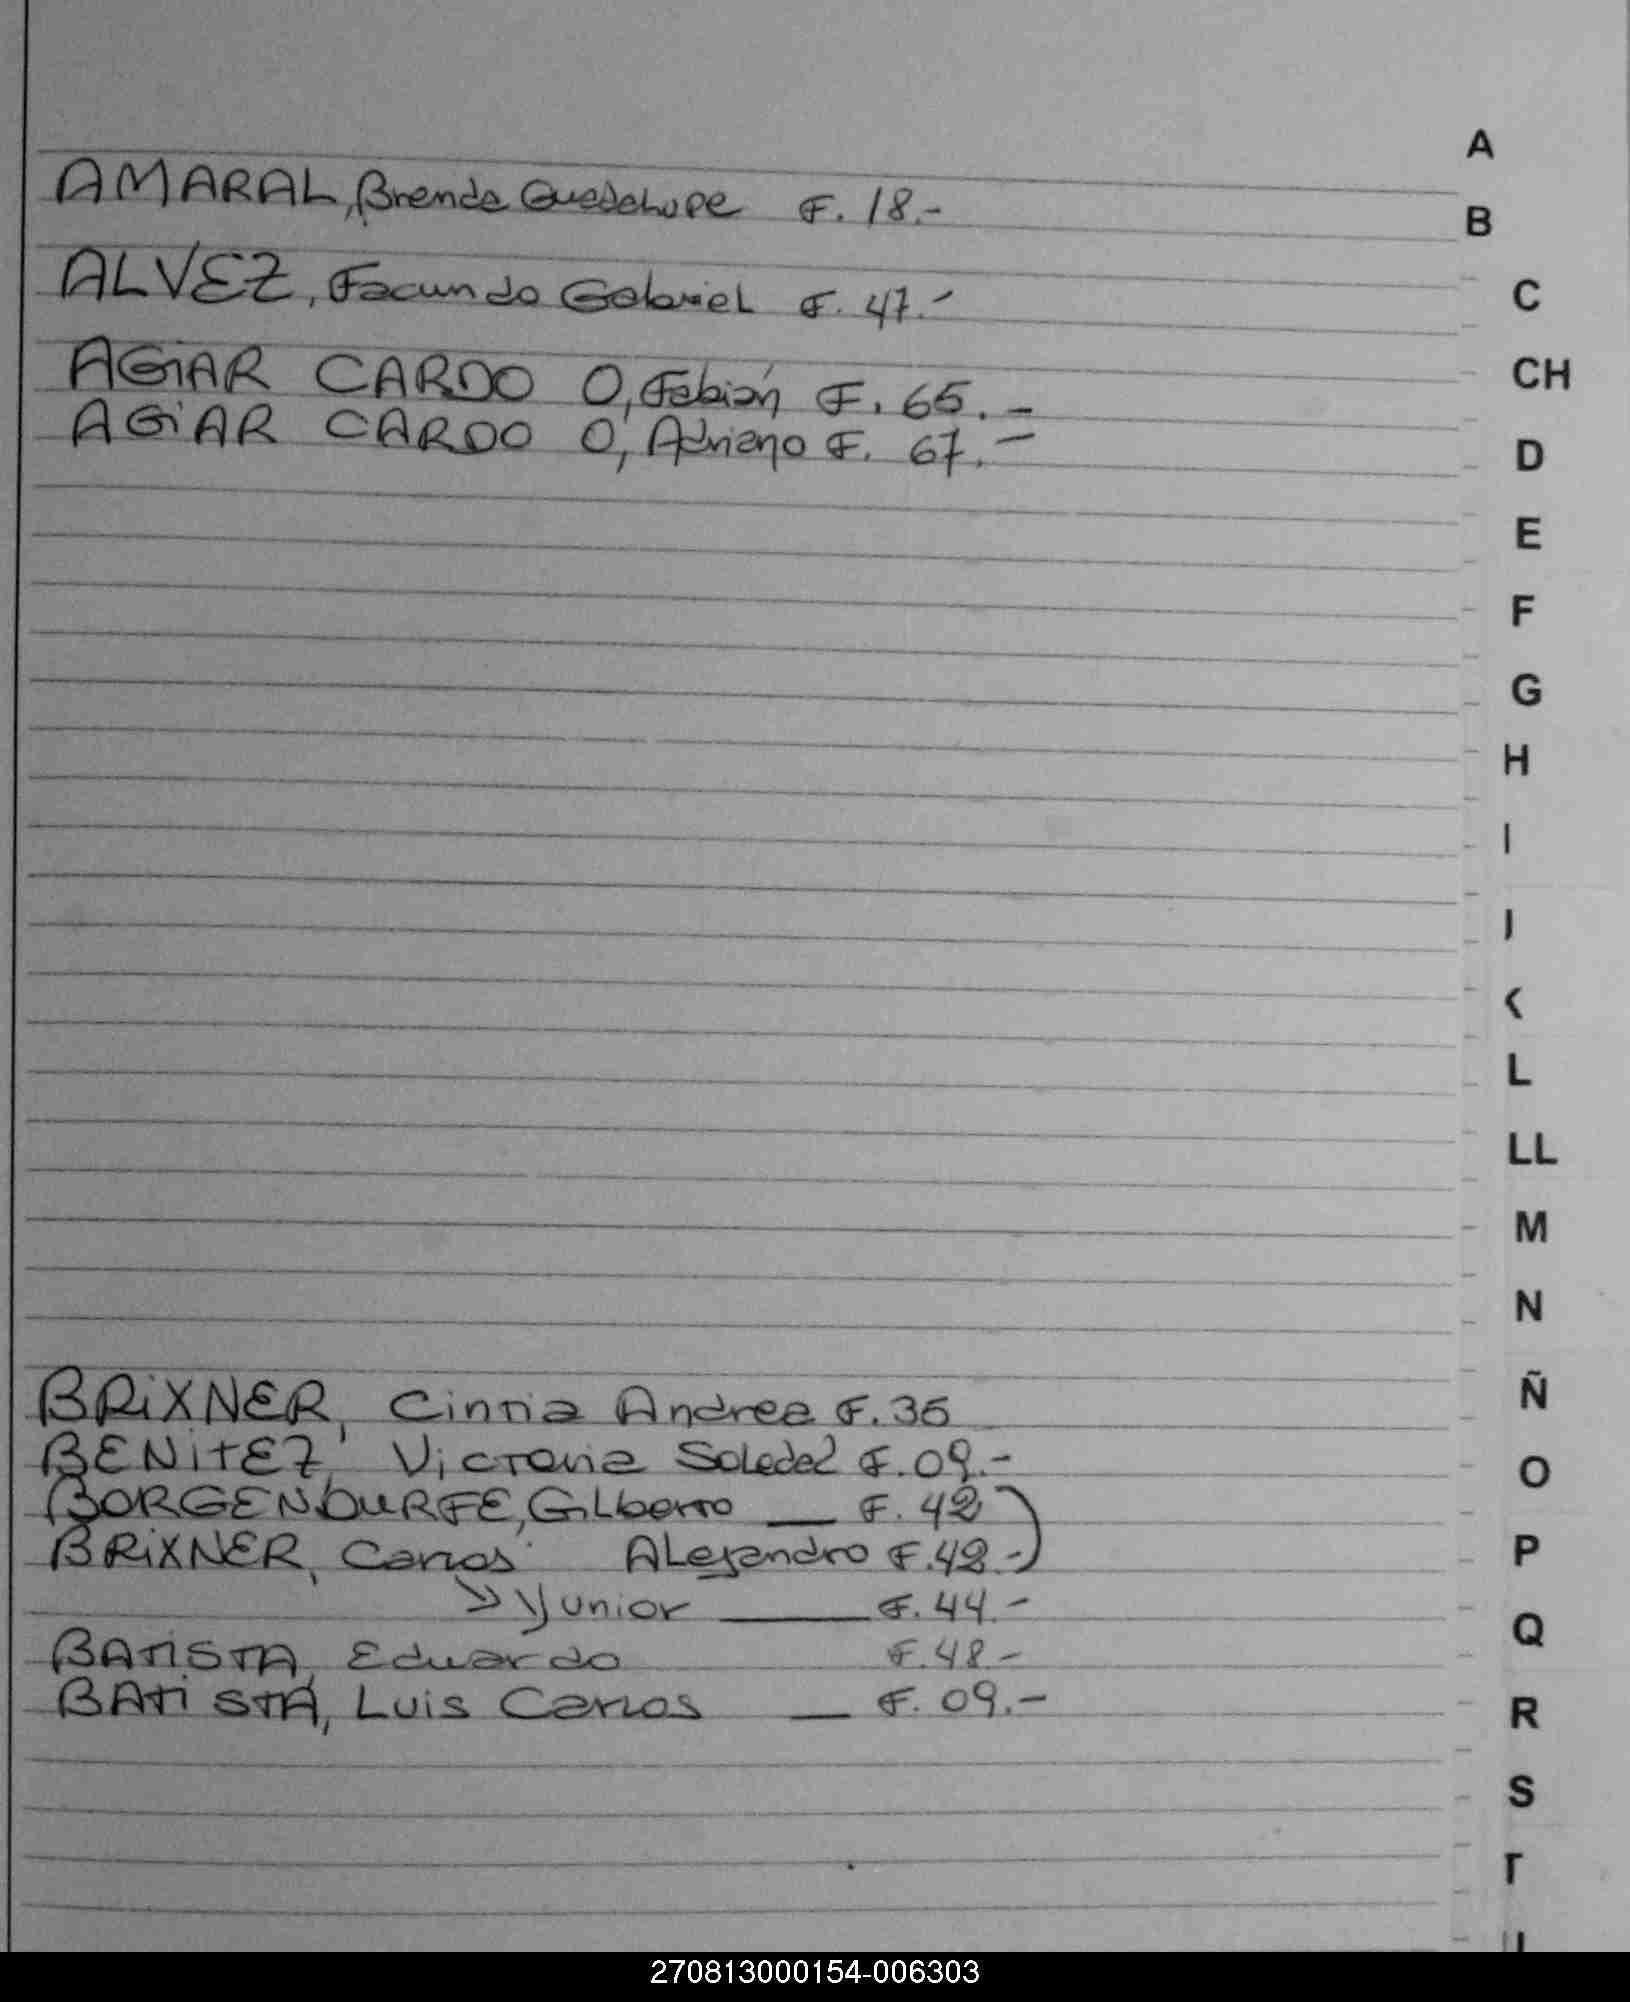 AMARAL, Brenda Guadalupe F. 18.-
ALVEZ, Facundo Gabriel F. 47.-
AGiAR CARDO O, Fabián F. 65.-
AGiAR CARDO O, Adriano F. 67.-
BRiXNER, Cintia Andrea F. 35
BENITEZ, Victoria Soledad F. 09.-
BORGENDURFE, Gilberto — F. 42
BRiXNER, Carlos Alejandro F. 42.-
>> Yunior — F. 44.-
BATiSTA, Eduardo F. 48-
BATiSTA, Luis Carlos — F. 09.-
A
B
C
CH
D
E
F
G
H
I
J
K
L
LL
M
N
Ñ
O
P
Q
R
S
T
270813000154-006303